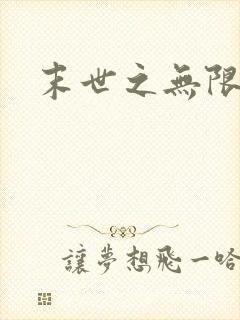 末世之無限
讓夢想飛一哈